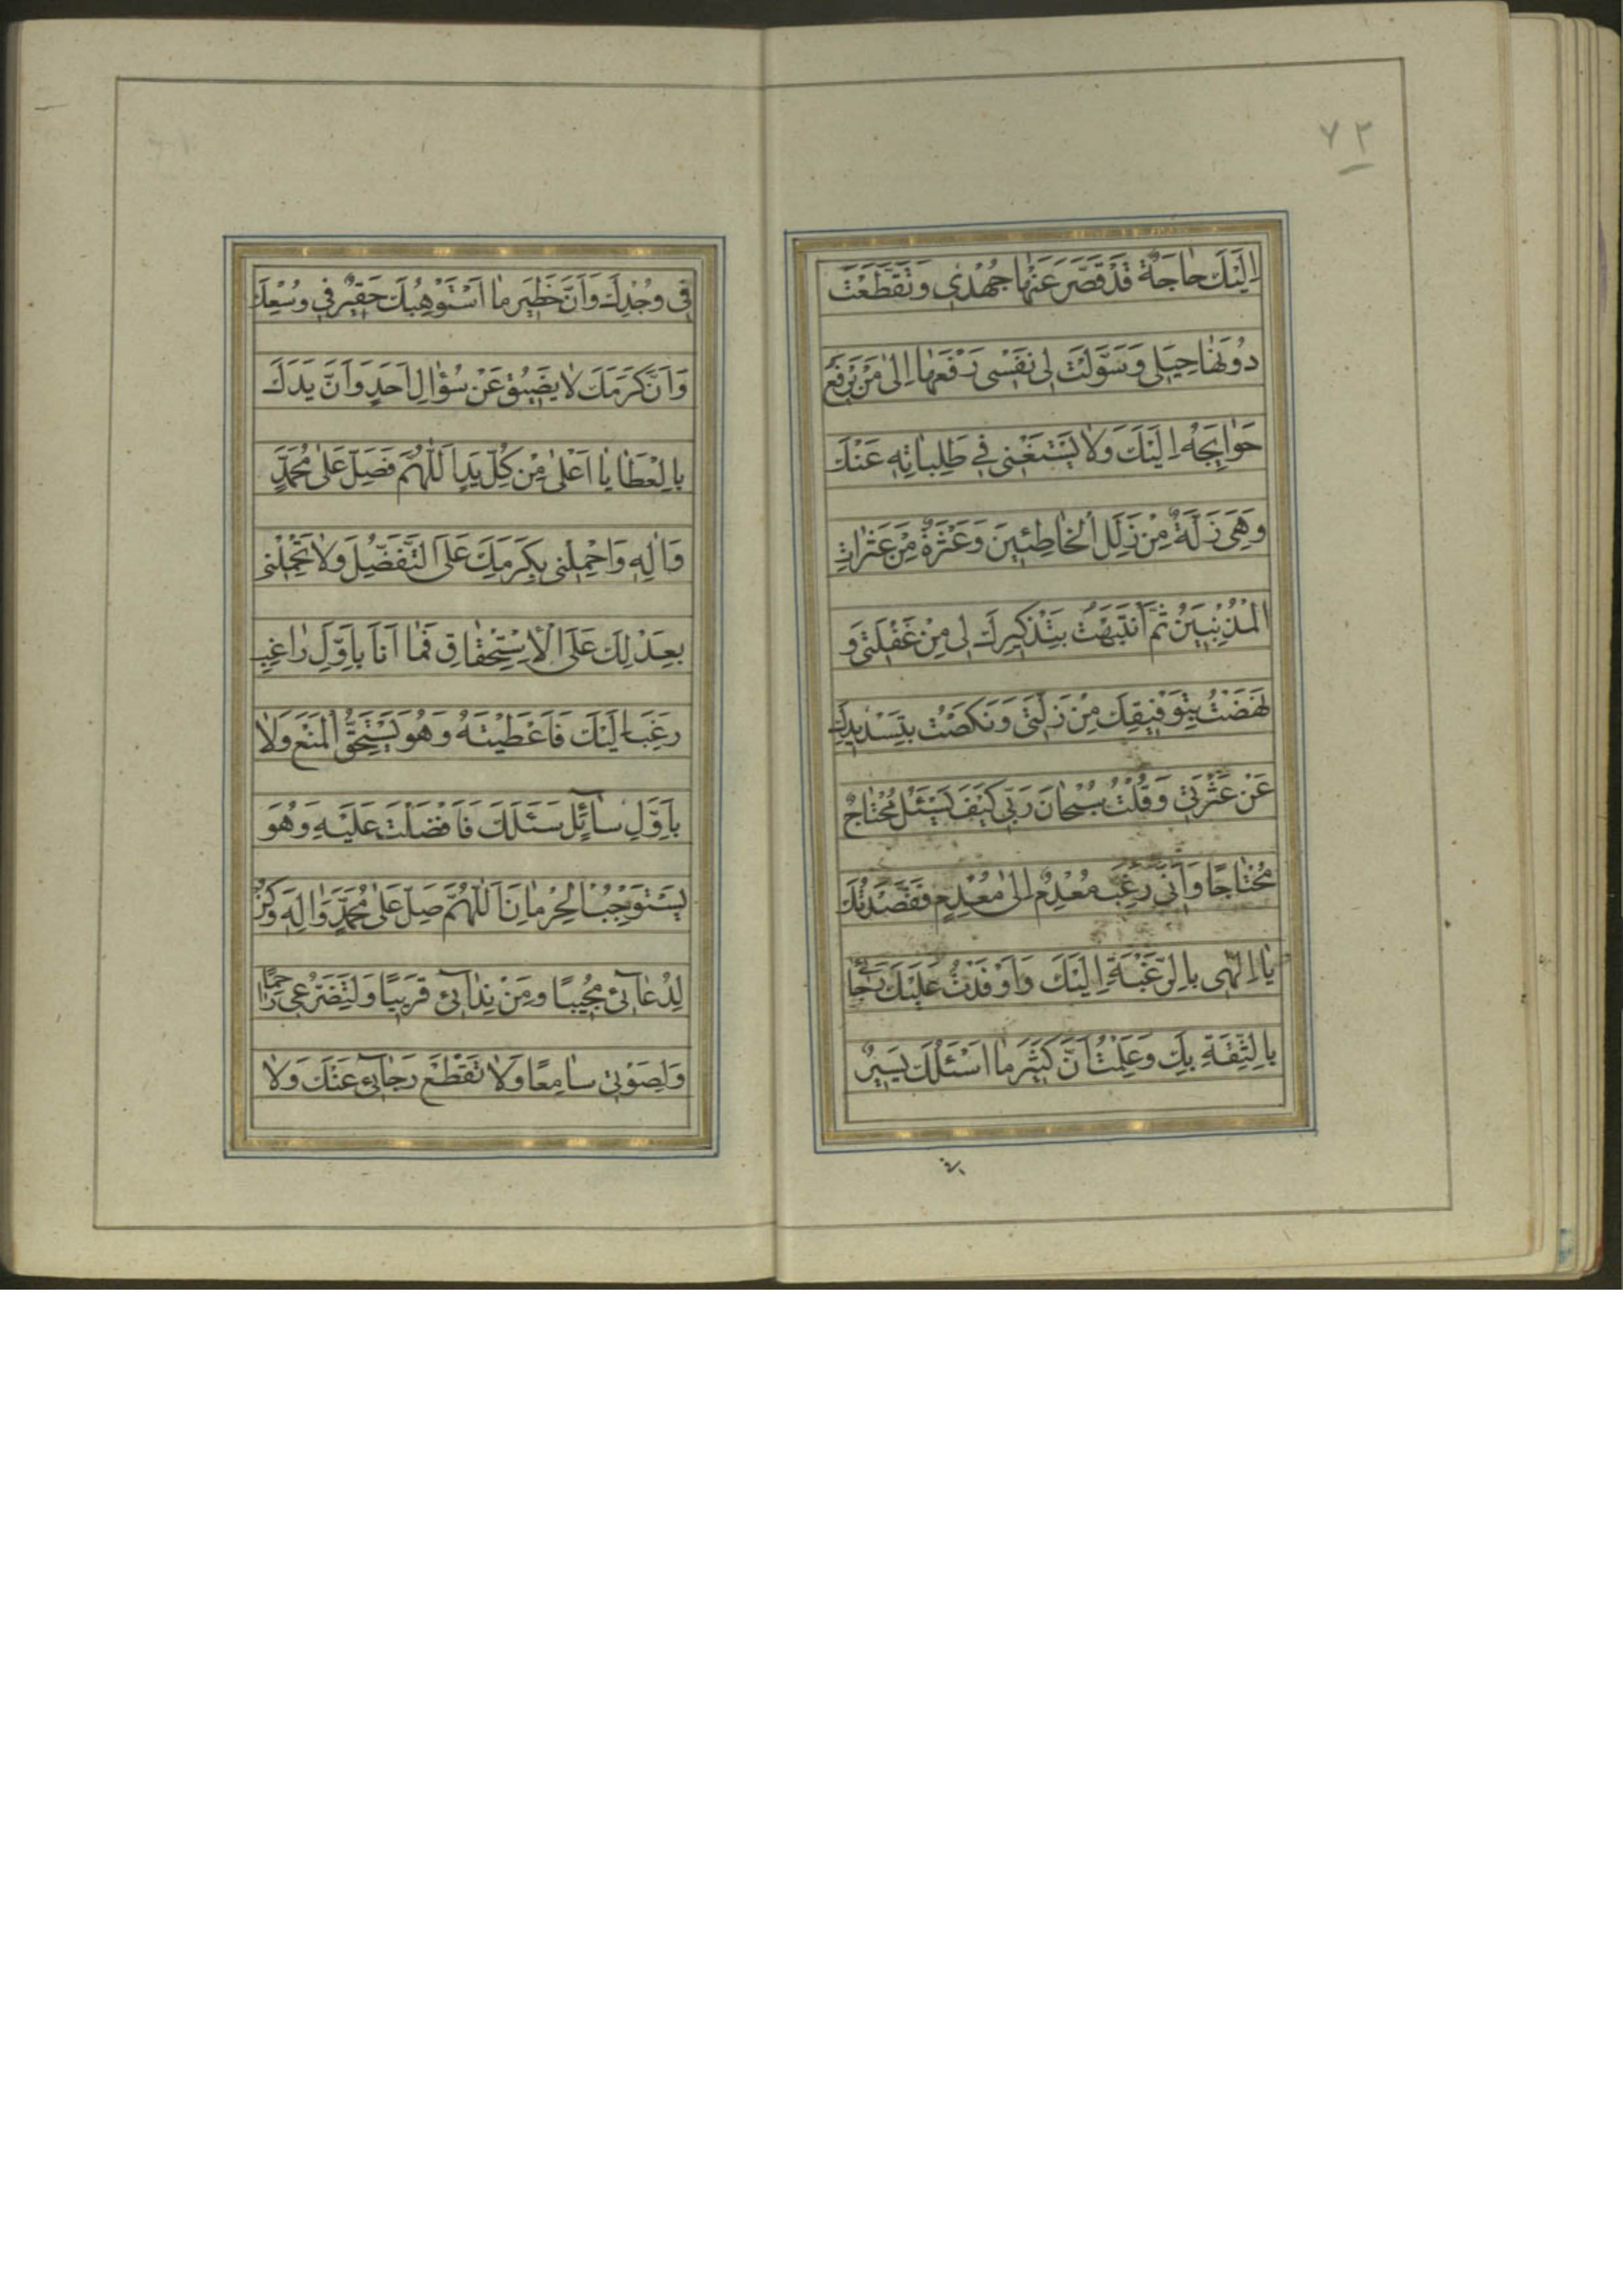 ٧٢
اِلَيْكَ حٰاجَةٌ قَدْ قَصَّرَ عَنْهٰا جُهْدٖى وَ تَقَطَّعَتْ
دُونَهٰا حِيَلى وَسَوَّلَتْ لى نَفْسى رَفْعَهٰا اِلىٰ مَنْ يَرْفَعُ
حَوٰايِجَهُ اِلَيْكَ وَلٰا يَسْتَغْنى فى طَلِبٰاتِهِ عَنْكَ
وَهِىَ زَلَّةٌ مِنْ زَلَلِ الْخٰاطِئينَ وَعَثْرَةٌ مِنْ عَثَرٰاتِ
الْمُذْنِبينَ ثُمَّ انْتَبَهْتُ بِتَذْكيرِكَ لى مِنْ غَفْلَتى وَ
نَهَضْتُ بِتَوْفيقِكَ مِنْ زَلَّتى وَنَكَصْتُ بِتَسْديدِكَ
عَنْ عَثْرَتى وَقُلْتُ سُبْحٰانَ رَبّى كَيْفَ يَسْئَلُ مُحْتٰاجٌ
مُحْتٰاجًا وَاَنّىٰ رَغِبَ مُعْدِمٌ اِلىٰ مُعْدِمٍ فَقَصَدْتُكَ
يٰا اِلٰهى بِالرَّغْبَةِ اِلَيْكَ وَاَوْفَدْتُ عَلَيْكَ رَجٰائى
بِالثِّقَةِ بِكَ وَعَلِمْتُ اَنَّ كَثيرَ مٰا اَسْئَلُكَ يَسيرٌ
فى
فى وُجْدِكَ وَاَنَّ خَطيرَ مٰا اَسْتَوْهِبُكَ حَقيرٌ فى وُسْعِكَ
وَاَنَّ كَرَمَكَ لٰا يَضيقُ عَنْ سُؤٰالِ اَحَدٍ وَاَنَّ يَدَكَ
بِالْعَطٰايٰا اَعْلىٰ مِنْ كُلِّ يَدٍ اَللّٰهُمَّ فَصَلِّ عَلىٰ مُحَمَّدٍ
وَاٰلِهِ وَاحْمِلْنى بِكَرَمِكَ عَلَى التَّفَضُّلِ وَلٰا تَحْمِلْنى
بِعَدْلِكَ عَلَى الْاِسْتِحْقٰاقِ فَمٰا اَنَا بِاَوَّلِ رٰاغِبٍ
رَغِبَ اِلَيْكَ فَاَعْطَيْتَهُ وَهُوَ يَسْتَحِقُّ الْمَنْعَ وَلٰا
بِاَوَّلِ سٰآئِلٍ سَئَلَكَ فَاَفْضَلْتَ عَلَيْهِ وَهُوَ
يَسْتَوْجِبُ الْحِرْمٰانَ اَللّٰهُمَّ صَلِّ عَلىٰ مُحَمَّدٍ وَاٰلِهِ وَكُنْ
لِدُعٰآئى مُجيبًا وَمِنْ نِدٰآئى قَريبًا وَلِتَضَرُّعى رٰاحِمًا
وَلِصَوْتى سٰامِعًا وَلٰا تَقْطَعْ رَجٰآئى عَنْكَ وَلٰا